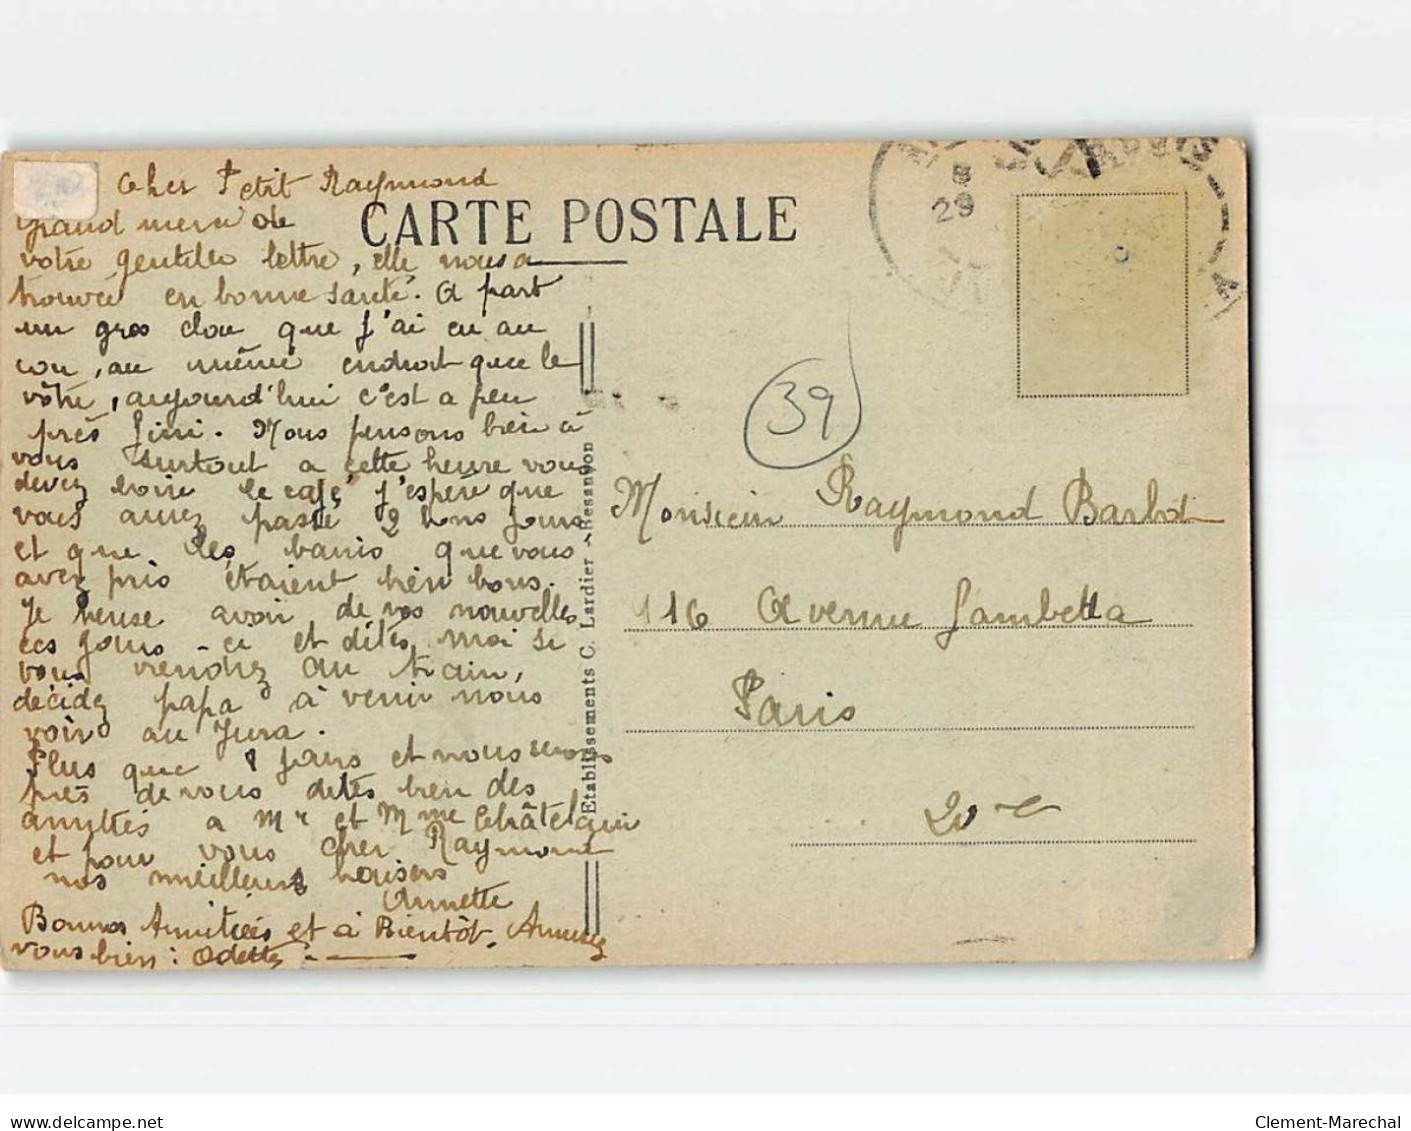 Cher Petit Raymond
grand merci de
votre gentille lettre, elle nous a
trouvée en bonne santé. A part
un gros clou que j'ai eu au
cou, au même endroit que le
vôtre, aujourd'hui c'est a peu
près fini. Nous pensons bien à
vous surtout a cette heure vous
devez boire le café j'espère que
vous aurez passé 2 bons jours
et que les bains que vous
avez pris étaient bien bons.
Je pense avoir de vos nouvelles
ces jours-ci et dites moi si
vous viendrez au train,
décidez papa à venir nous
voir au Jura.
Plus que 8 jours et nous serons
près de vous dites bien des
amyttés a Mr et Mme Châtelain
et pour vous cher Raymond
nos meilleurs baisers
Annette
Bonnes Amitiées et à Bientôt. Amusez
vous bien : Odette
CARTE POSTALE
Etablissements C. Lardier - Besançon
29
39
Monsieur Raymond Barbot
116 Avenue Gambetta
Paris
20e
delcampe.net
Clement-Marechal